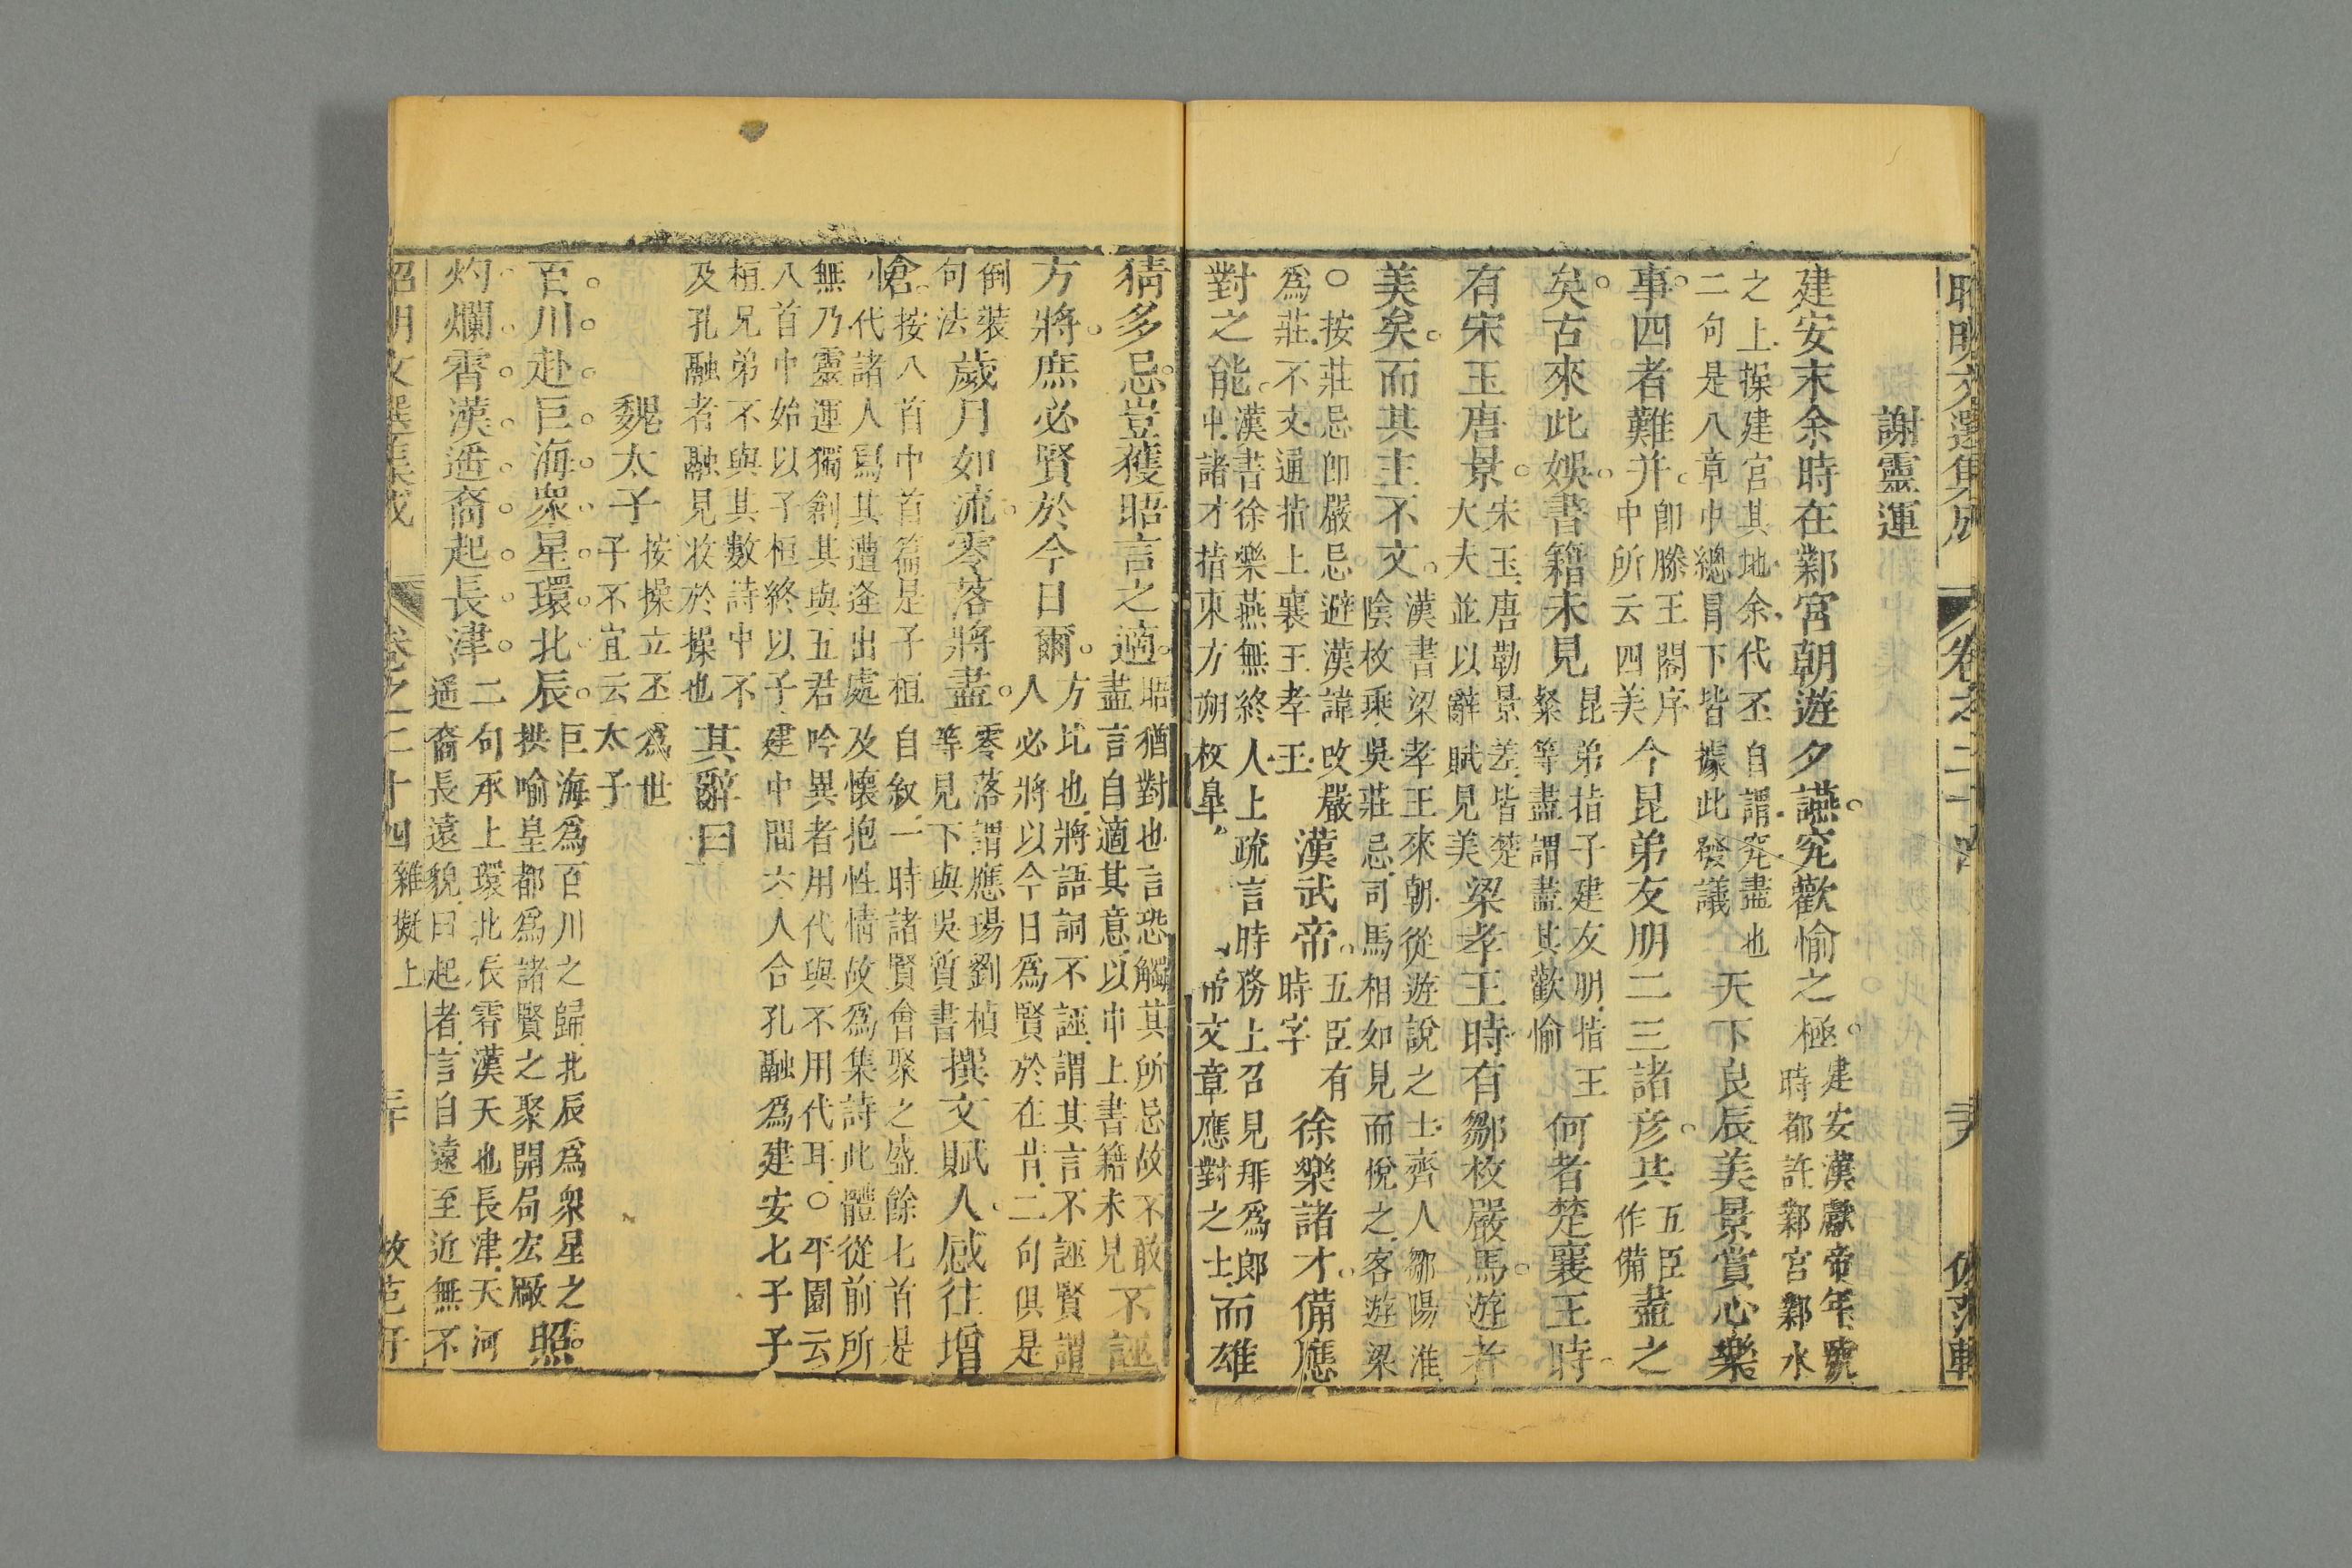 昭明文選集成 卷之二十
謝靈運
建安末余時在鄴宮朝遊夕讌究歡愉之極建安漢獻帝年號時都許鄴宮鄴水
之上操建宮其地余代丕自謂究盡也二句是八章中總冒下皆據此發議天下良辰美景賞心樂
事四者難并卽滕王閣序中所云四美今昆弟友朋二三諸彥共五臣作備盡之
矣古來此娛書籍未見昆弟指子建友朋指王粲等盡謂盡其歡愉何者楚襄王時
有宋玉唐景宋玉唐勒景差皆楚大夫並以辭賦見美梁孝王時有鄒枚嚴馬遊者
美矣而其主不文漢書梁孝王來朝從遊說之士齊人鄒陽淮陰枚乘吳莊忌司馬相如見而悅之客遊梁
○按莊忌卽嚴忌避漢諱改嚴爲莊不文通指上襄王孝王漢武帝五臣有時字徐樂諸才備應
對之能漢書徐樂燕無終人上疏言時務上召見拜爲郎中諸才指東方朔枚皋帝文章應對之士而雄
猜多忌豈獲晤言之適晤猶對也言恐觸其所忌故不敢盡言自適其意以巾上書籍未見不誣
方將庶必賢於今日爾方比也將語詞不誣謂其言不誣賢謂人必將以今日爲賢於在昔二句俱是
倒裝句法歲月如流零落將盡零落謂應瑒劉楨等見下與吳質書撰文賦人感往增
愴按八首中首篇是子桓自叙一時諸賢會聚之盛餘七首是小代諸人寫其遭逢出處及懷抱性情故爲集詩此體從前所
無乃靈運獨創其與五君吟異者用代與不用代耳○平園云八首中始以子桓終以子建中間六人合孔融爲建安七子子
桓兄弟不與其數詩中不及孔融者融見妝於操也其辭曰
魏太子按操立丕爲世子不宜云太子
百川赴巨海衆星環北辰巨海爲百川之歸北辰爲衆星之拱喻皇都爲諸賢之聚開局宏厰照
灼爛霄漢遥裔起長津二句承上環北辰霄漢天也長津天河遥裔長遠貌曰起者言自遠至近無不
昭明文選集成 卷之二十四雜擬上